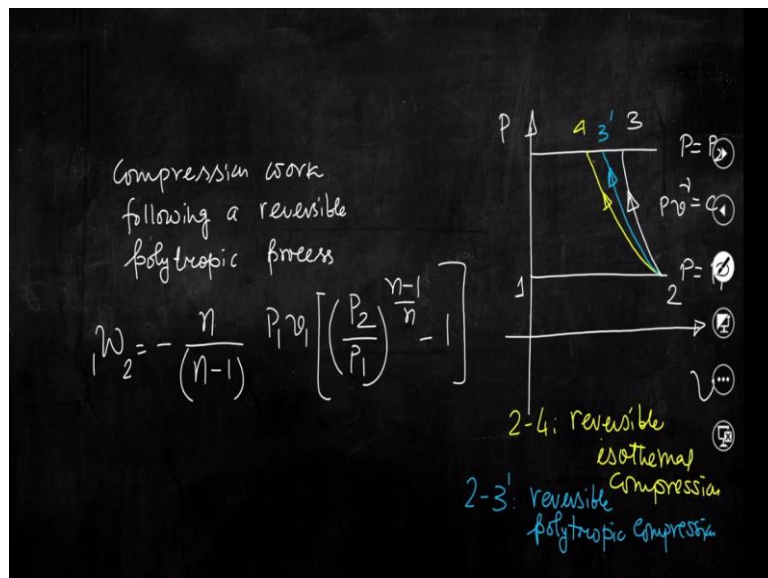 Compression work
following a reversible
polytropic process
₁W₂ = - n/(n-1) P₁v₁ [(P₂/P₁)^((n-1)/n) - 1]
P
4 3' 3
P = P₂
Pv^γ = C
P = P₁
1
2
2-4: reversible
isothermal
Compression
2-3': reversible
polytropic Compression